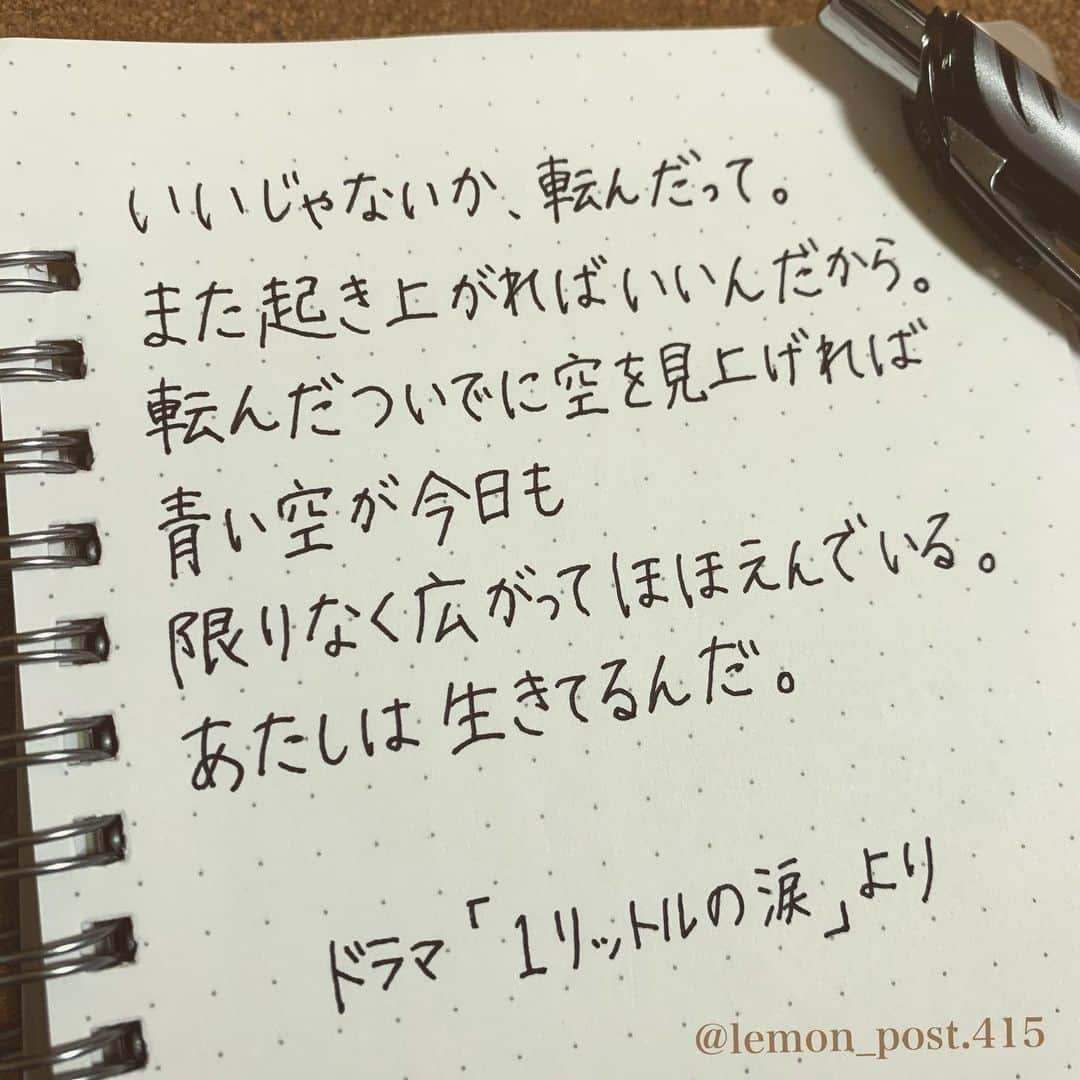 いいじゃないか、転んだって。
また起き上がればいいんだから。
転んだついでに空を見上げれば
青い空が今日も
限りなく広がってほほえんでいる。
あたしは生きてるんだ。
ドラマ「1リットルの涙」より
@lemon_post.415